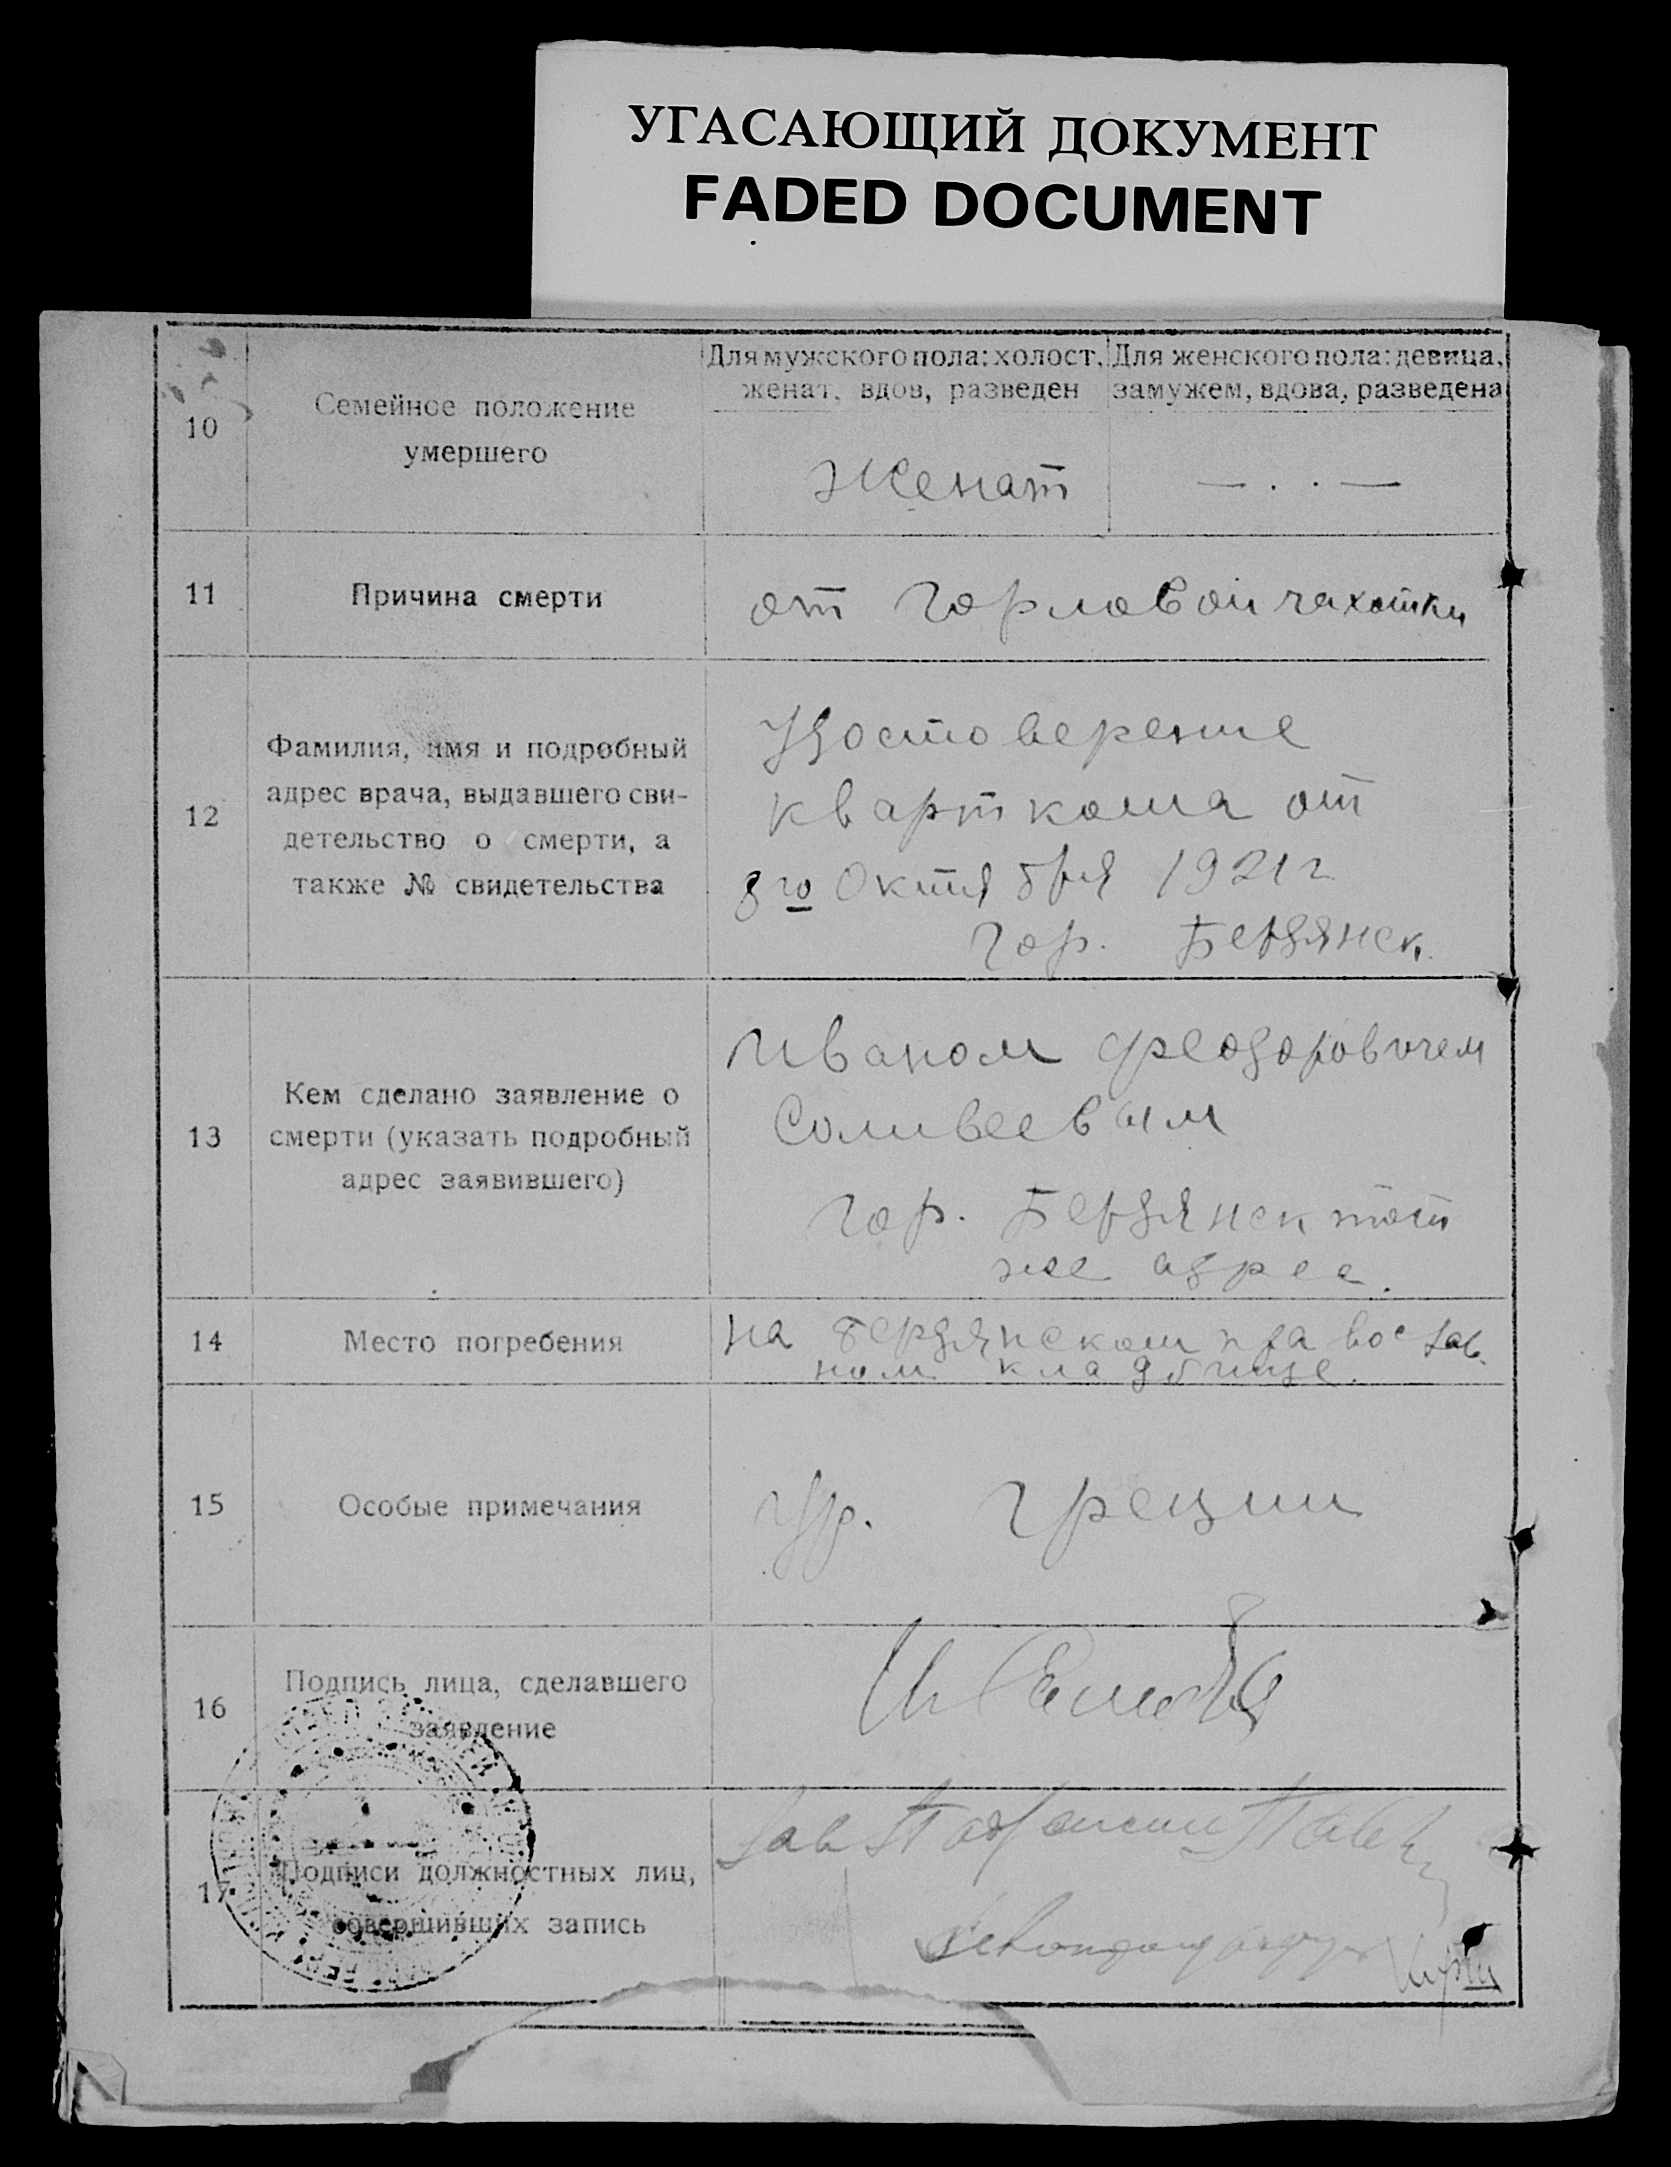 УГАСАЮЩИЙ ДОКУМЕНТ
FADED DOCUMENT
10
Семейное положение
умершего
Для мужского пола: холост,
женат, вдов, разведен
Для женского пола: девица,
замужем, вдова, разведена
Женат
— . . —
11
Причина смерти
от горловой чахотки
12
Фамилия, имя и подробный
адрес врача, выдавшего сви-
детельство о смерти, а
также № свидетельства
Удостоверение
кварткома от
8го Октября 1921 г
гор. Бердянск.
13
Кем сделано заявление о
смерти (указать подробный
адрес заявившего)
Иваном Феодоровичем
Соливеевым
гор. Бердянск тот
же адрес.
14
Место погребения
на бердянском православ.
ном кладбище.
15
Особые примечания
гр. Греции
16
Подпись лица, сделавшего
заявление
17
Подписи должностных лиц,
совершивших запись
Зав